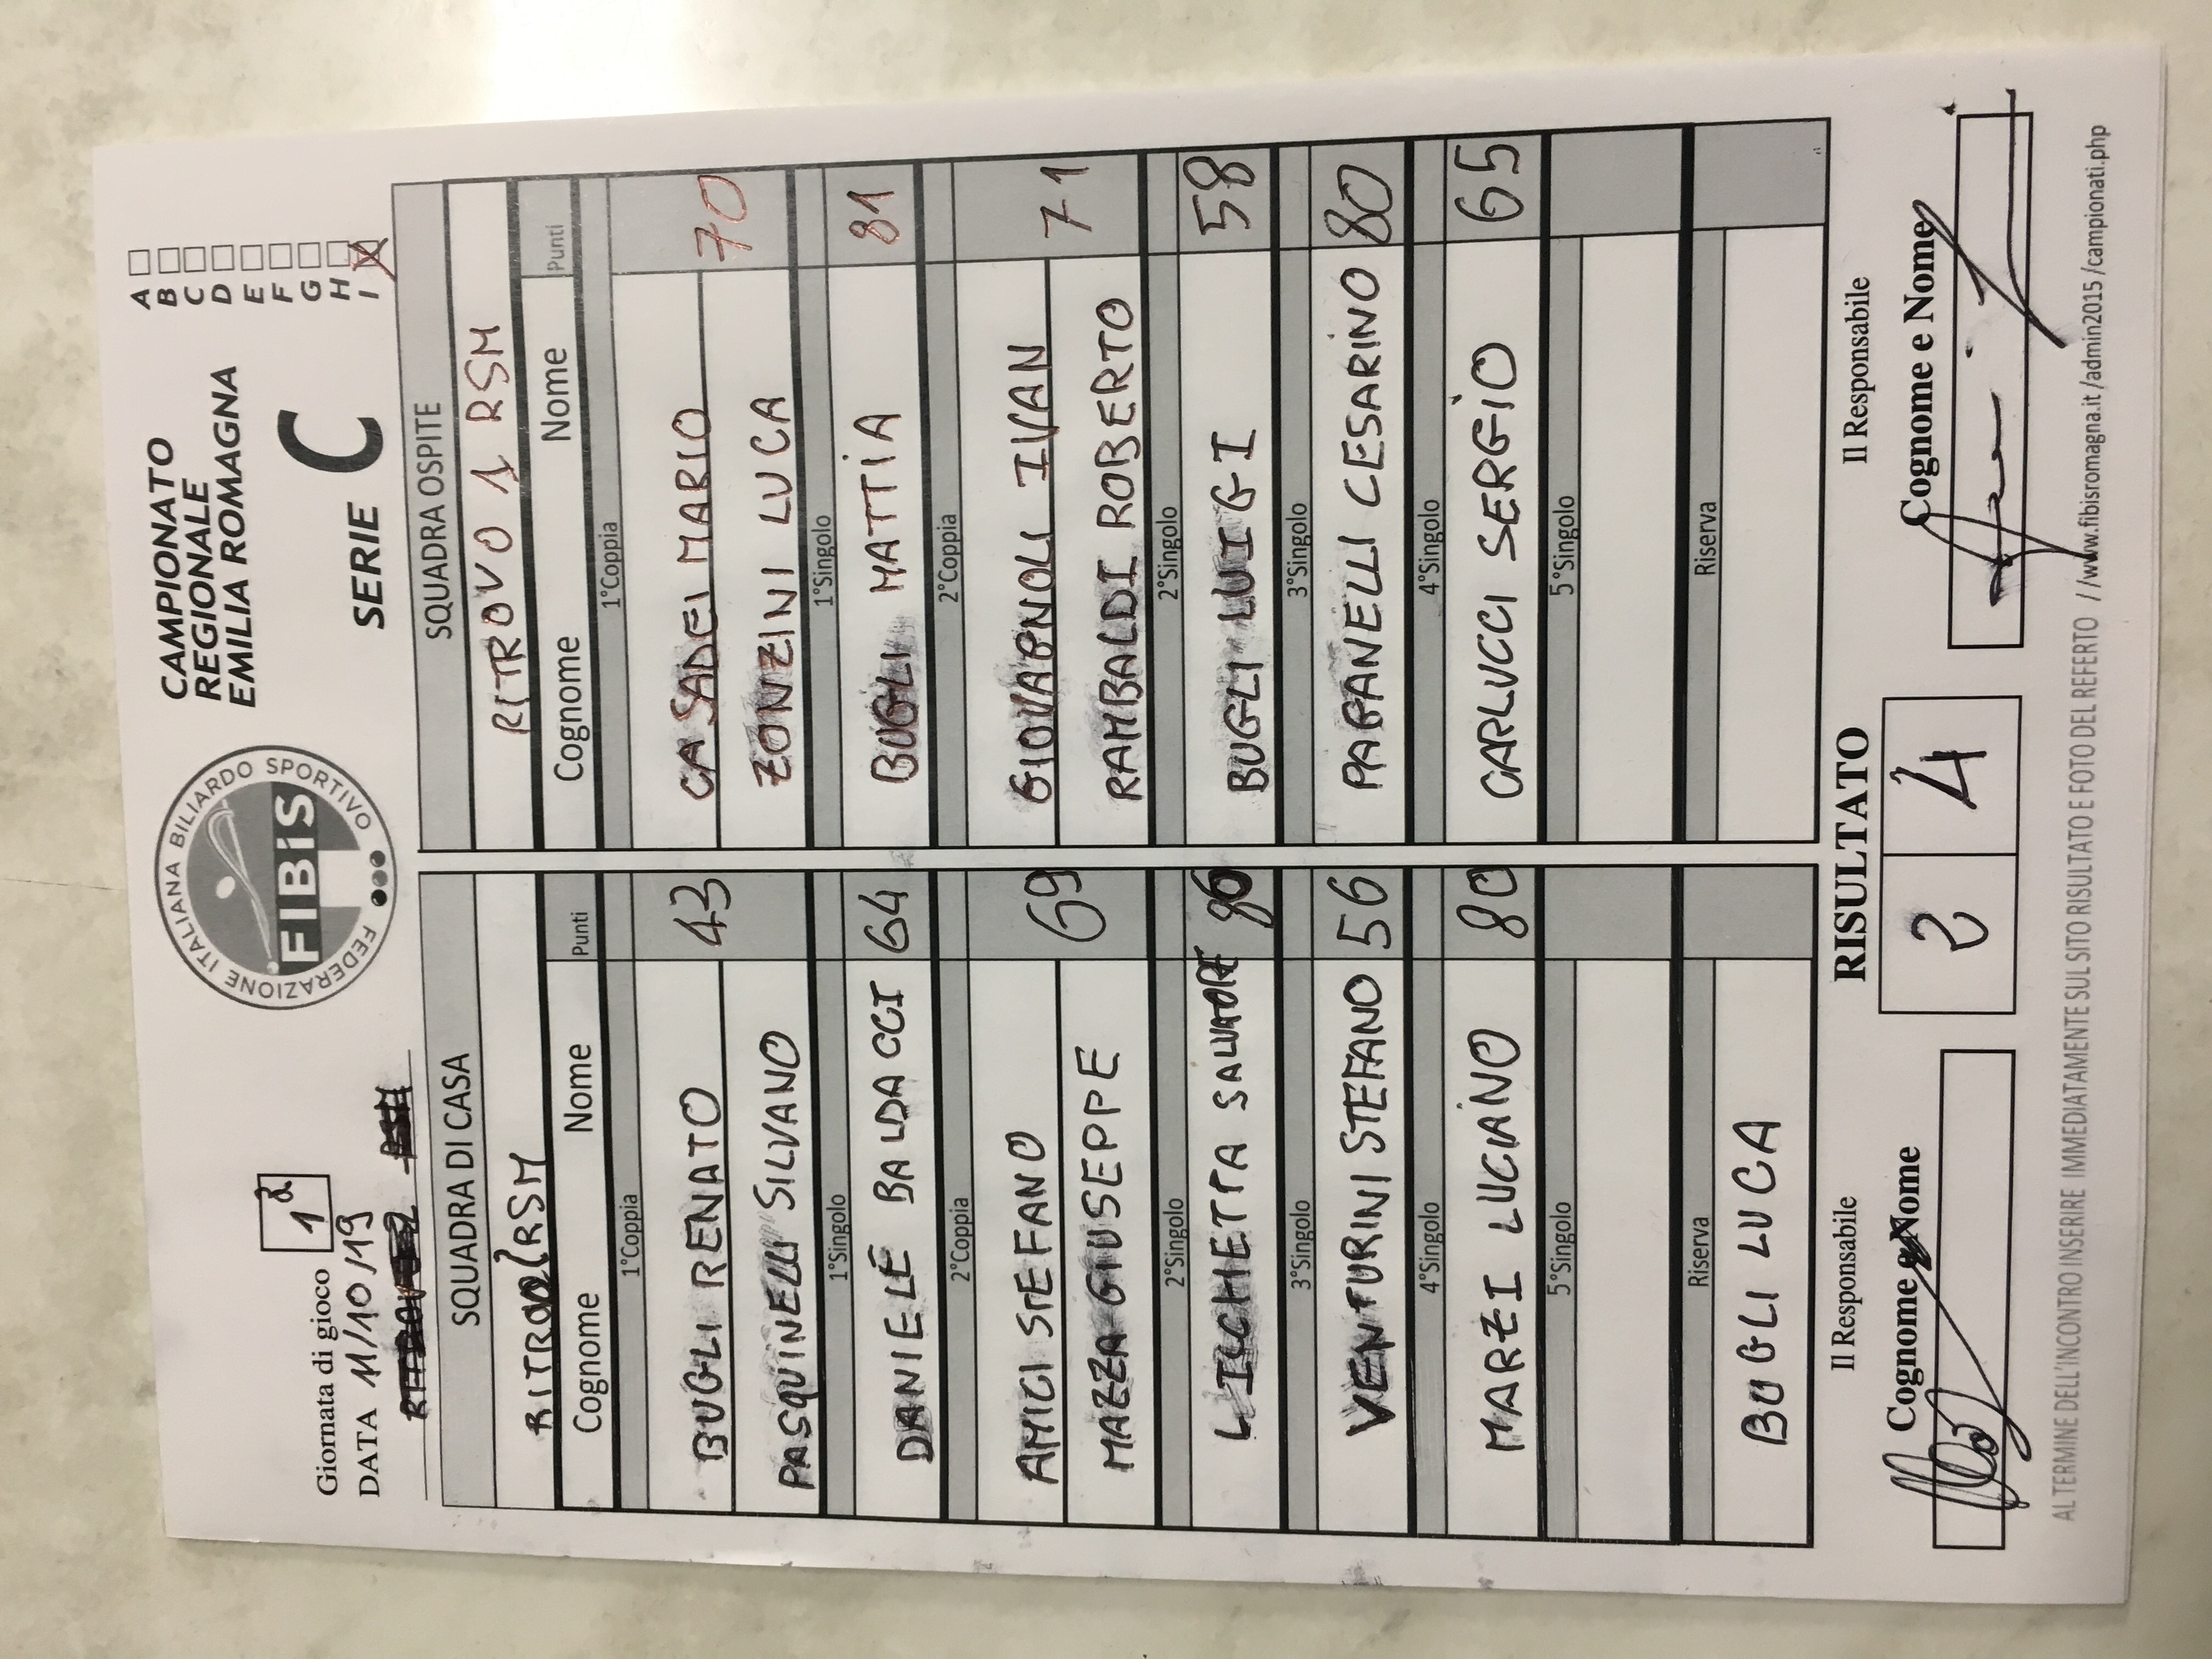 Giornata di gioco 1ª
DATA 11/10/19
FEDERAZIONE ITALIANA BILIARDO SPORTIVO
FIBiS
CAMPIONATO
REGIONALE
EMILIA ROMAGNA
SERIE C
A
B
C
D
E
F
G
H
I X
SQUADRA DI CASA
RSM
Cognome Nome Punti
1°Coppia
BUGLI RENATO 43
PASQUINELLI SILVANO
1°Singolo
DANIELE BALDACCI 64
2°Coppia
AMICI STEFANO 69
MAZZA GIUSEPPE
2°Singolo
LICCHETTA SALVATORE 80
3°Singolo
VENTURINI STEFANO 56
4°Singolo
MARZI LUCIANO 80
5°Singolo
Riserva
BUGLI LUCA
SQUADRA OSPITE
RITROVO 1 RSM
Cognome Nome Punti
1°Coppia
CASADEI MARIO 70
ZONZINI LUCA
1°Singolo
BUGLI MATTIA 81
2°Coppia
GIOVAGNOLI IVAN 71
RAMBALDI ROBERTO
2°Singolo
BUGLI LUIGI 58
3°Singolo
PAGANELLI CESARINO 80
4°Singolo
CARLUCCI SERGIO 65
5°Singolo
Riserva
Il Responsabile
Cognome e Nome
RISULTATO
2 4
Il Responsabile
Cognome e Nome
AL TERMINE DELL'INCONTRO INSERIRE IMMEDIATAMENTE SUL SITO RISULTATO E FOTO DEL REFERTO //www.fibisromagna.it /admin2015 /campionati.php